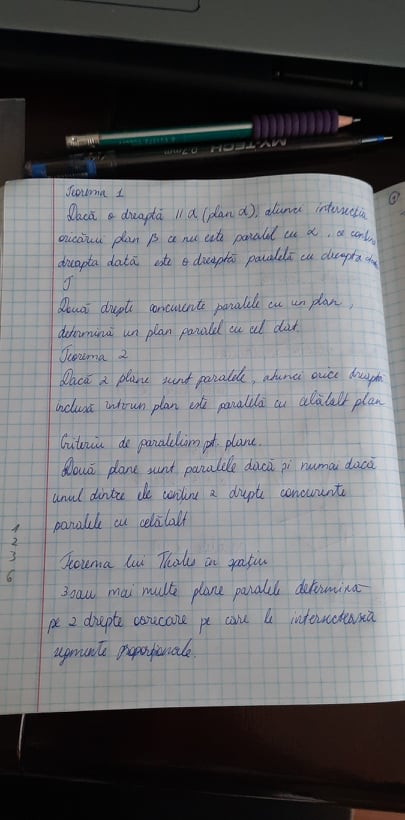 Teorema 1
Dacă o dreaptă || α (plan α), atunci intersecția
oricărui plan β ce nu este paralel cu α, ce conține
dreapta dată este o dreaptă paralelă cu dreapta
T
Două drepte concurente paralele cu un plan,
determină un plan paralel cu cel dat.
Teorema 2
Dacă 2 plane sunt paralele, atunci orice dreapta
inclusă într-un plan este paralelă cu celălalt plan
Criteriu de paralelism pt. plane.
Două plane sunt paralele dacă și numai dacă
unul dintre ele contine 2 drepte concurente
paralele cu celălalt
Teorema lui Thales în spațiu
3 sau mai multe plane paralele determină
pe 2 drepte oarecare pe care le intersectează
segmente proporționale.
1
2
3
6
MY-TECH 0.7mm